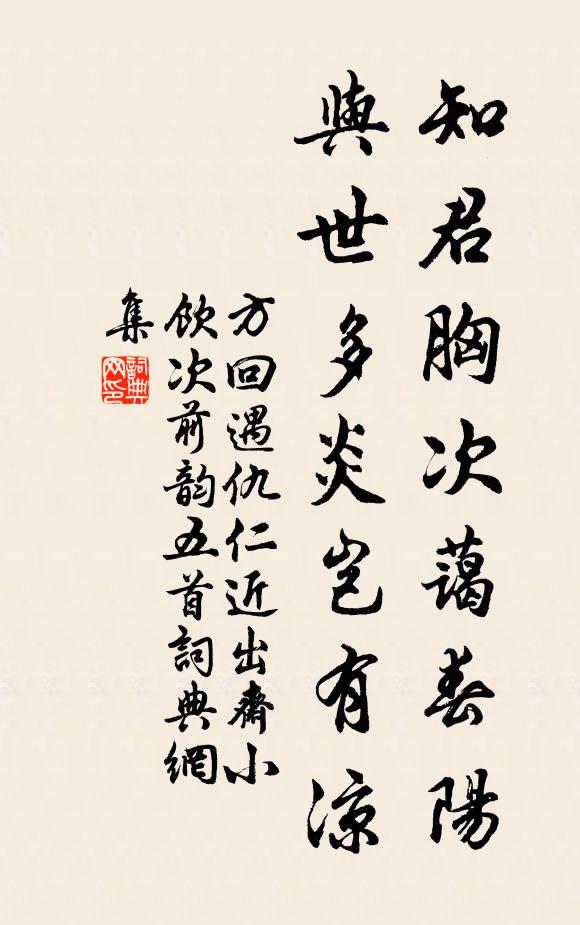 知君胸次藹春陽
與世多炎豈有凉
方回遇仇仁近出齋小
飲次前韵五首詞典網
集
詞典
网印